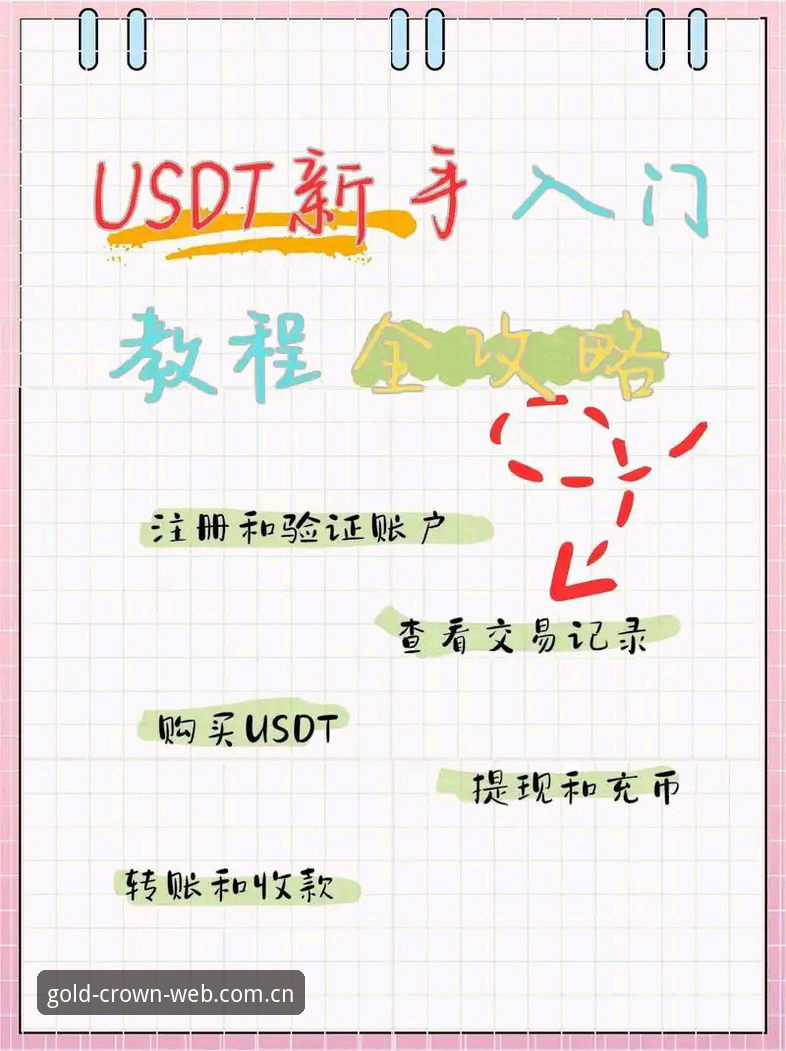 USDT新手入门
教程全攻略
注册和验证账户
查看交易记录
购买USDT
提现和充币
转账和收款
gold-crown-web.com.cn